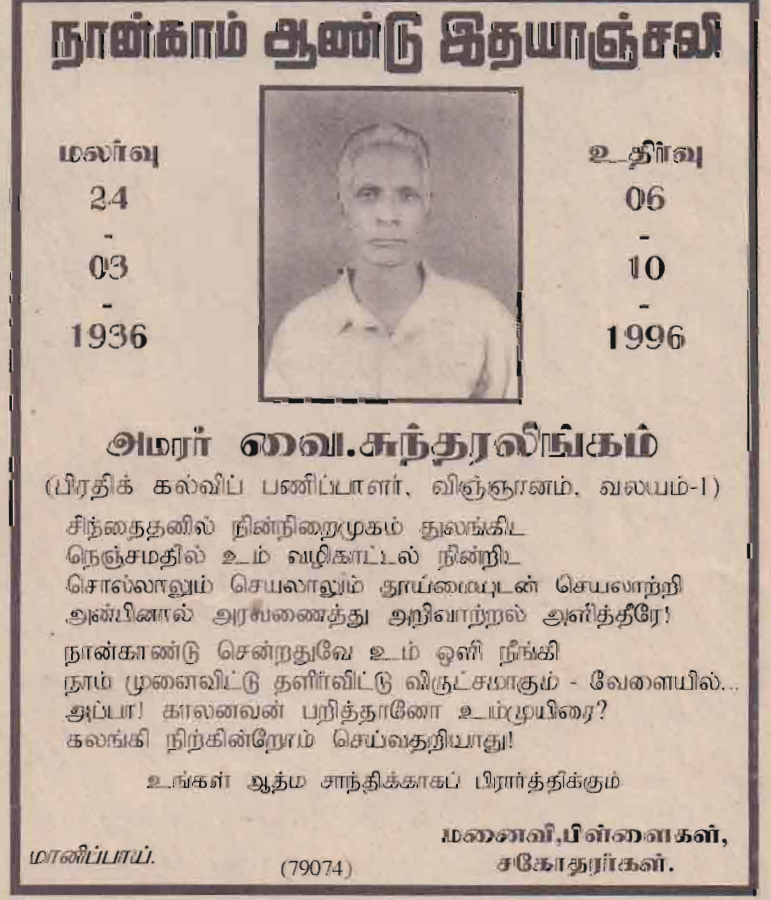 நான்காம் ஆண்டு இதயாஞ்சலி
மலர்வு
24
-
03
-
1936
உதிர்வு
06
-
10
-
1996
அமரர் வை.சுந்தரலிங்கம்
(பிரதிக் கல்விப் பணிப்பாளர், விஞ்ஞானம், வலயம்-1)
சிந்தைதனில் நின்நிறைமுகம் துலங்கிட
நெஞ்சமதில் உம் வழிகாட்டல் நின்றிட
சொல்லாலும் செயலாலும் தூய்மையுடன் செயலாற்றி
அன்பினால் அரவணைத்து அறிவாற்றல் அளித்தீரே!
நான்காண்டு சென்றதுவே உம் ஒளி நீங்கி
நாம் முளைவிட்டு தளிர்விட்டு விருட்சமாகும் - வேளையில்...
அப்பா! காலனவன் பறித்தானோ உம்முயிரை?
கலங்கி நிற்கின்றோம் செய்வதறியாது!
உங்கள் ஆத்ம சாந்திக்காகப் பிரார்த்திக்கும்
மனைவி,பிள்ளைகள்,
சகோதரர்கள்.
மானிப்பாய்.
(79074)